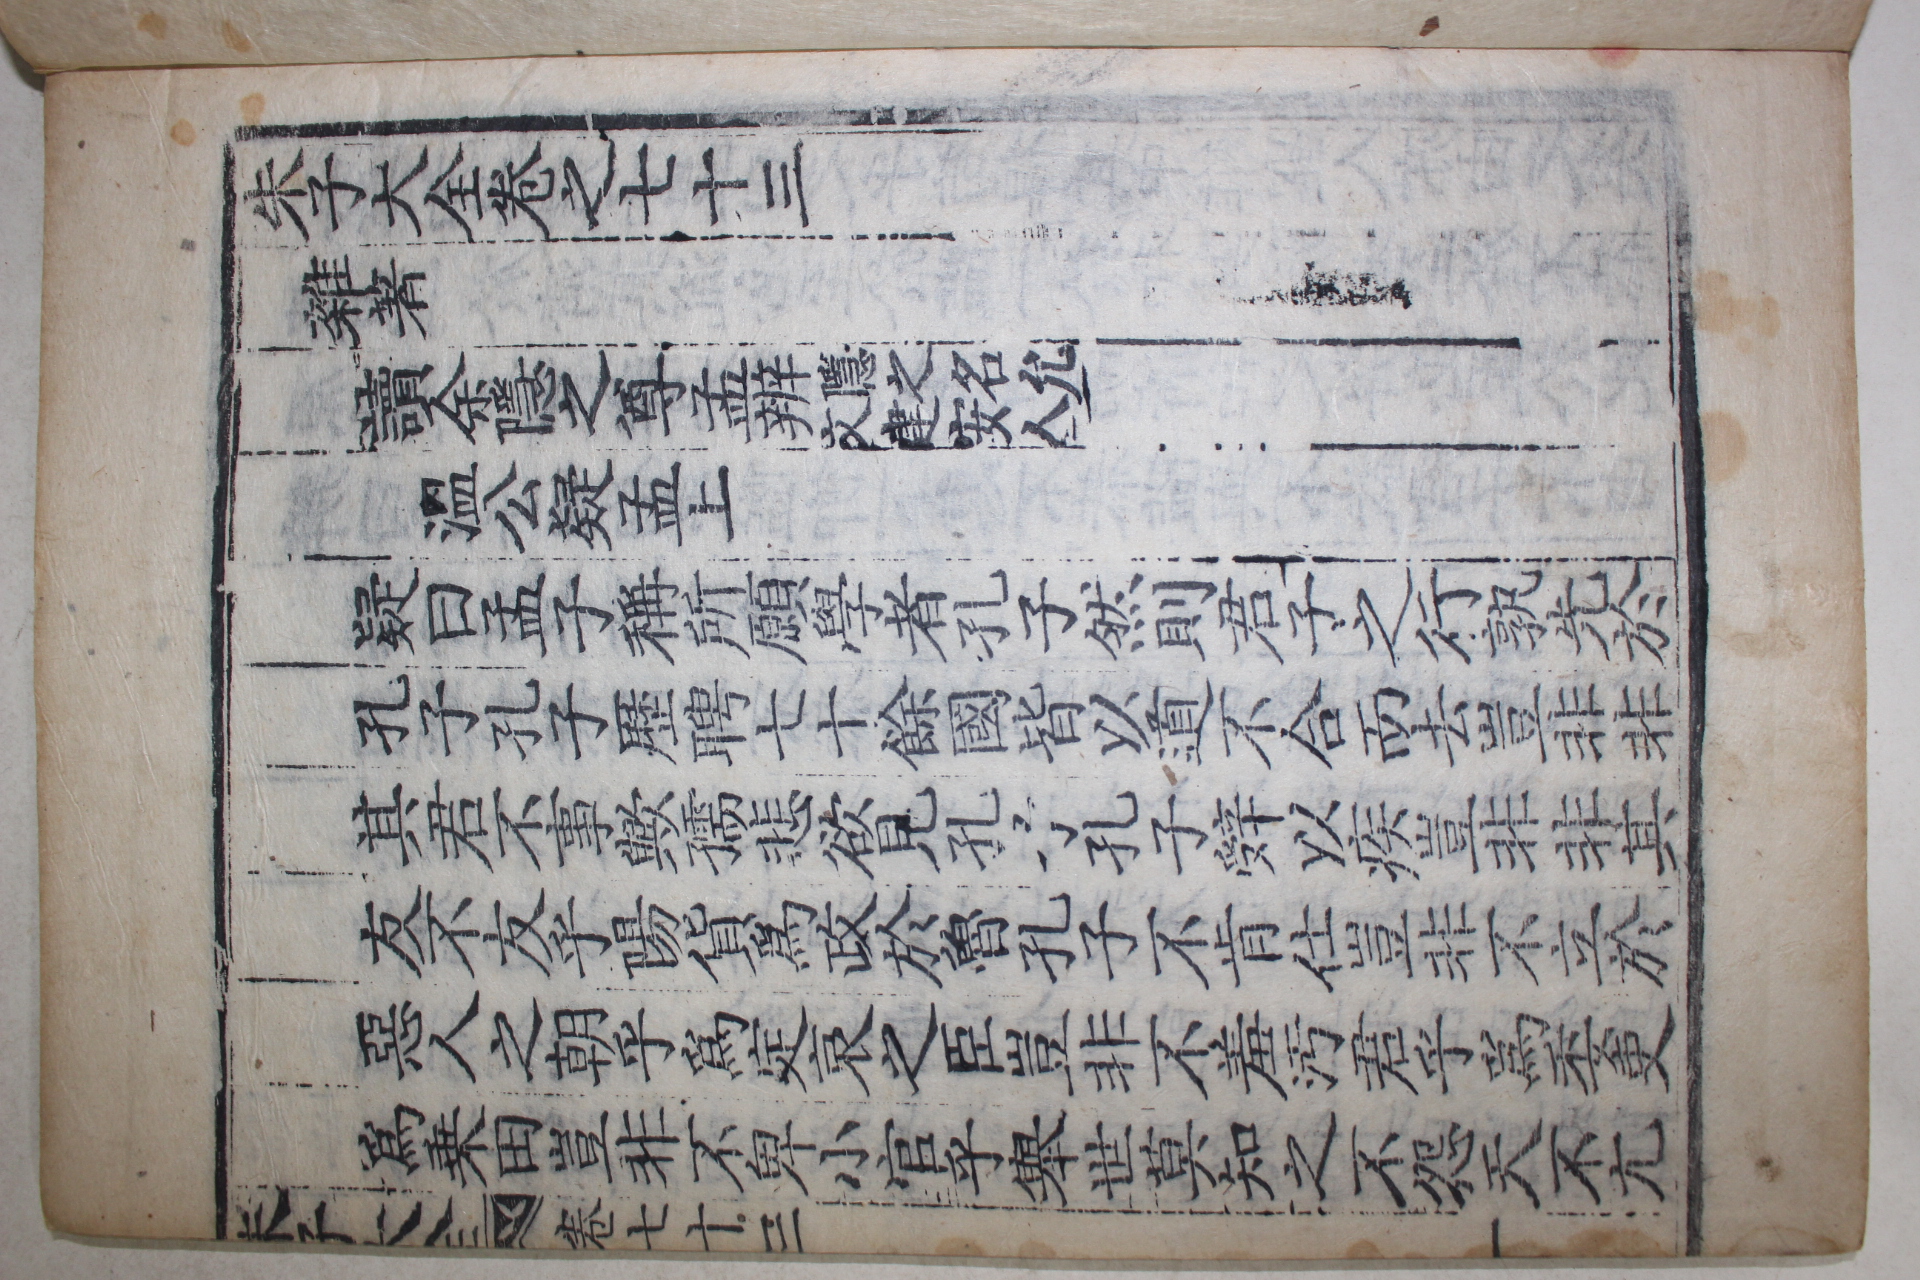 朱子大全卷之七十三
雜著
讀余隱之尊孟辨隱之名允文建安人
溫公疑孟上
疑曰孟子稱所願學者孔子然則君子之行孰先於
孔子孔子歷聘七十餘國皆以道不合而去豈非非
其君不事歟孺悲欲見孔子孔子辭以疾豈非非其
友不友乎陽貨爲政於魯孔子不肯仕豈非不立於
惡人之朝乎爲定哀之臣豈非不羞汚君乎爲委吏
爲乘田豈非不卑小官乎擧世莫知之不怨天不尤
朱子大全 卷七十三 一